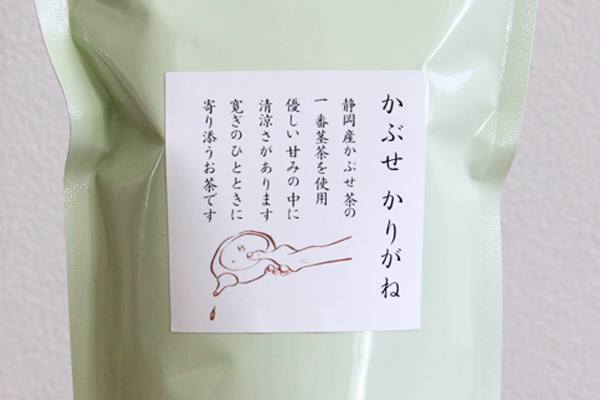 かぶせ かりがね
静岡産かぶせ茶の
一番茎茶を使用
優しい甘みの中に
清涼さがあります
寛ぎのひとときに
寄り添うお茶です